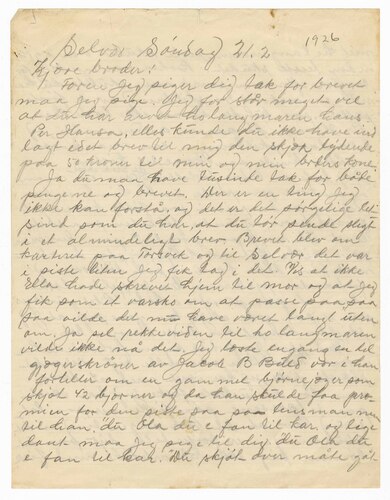 1926
Selvær Söndag 21.2
Kjære broder!
Foren Jeg siger dig tak for brevet
maa Jeg sige. Jeg for stor meget vel
at du har ervet ho lang maren hans
Per Hansa, elles kunde du ikke have ind
lagt idet brev til mig den skjøn lydende
paa 50 kroner til mig og min broders kone.
Ja du maa have tusinde tak for både
pengene og brevet. Der er en ting Jeg
ikke kan forstå, og det er det sørgelige let
sind som du har, at du tör sende sligt
i et almindeligt brev. Brevet blev om
karteret paa Torsvik og til Selvær det var
i siste liten Jeg fik tag i det. Vis at ikke
ella hade skrevet hjem til mor og at Jeg
fik som et varsko om at passe paa
saa vilde det nu have været langt uten
om. Ja sel rekkevidden til ho langmaren
vilde ikke nå det. Jeg læste engang en til
gjøgerskrøner av Jacob B Bull vor i han
forteller om en gammel björnejæger som
skjøt 42 björner og da han skulde faa præ
mien for den siste saa sa lensman
til han. du Ola du e fan til kar. og lige
dant maa Jeg sige til dig du Ola du
e fan til kar. Du skjøt over måte gåt